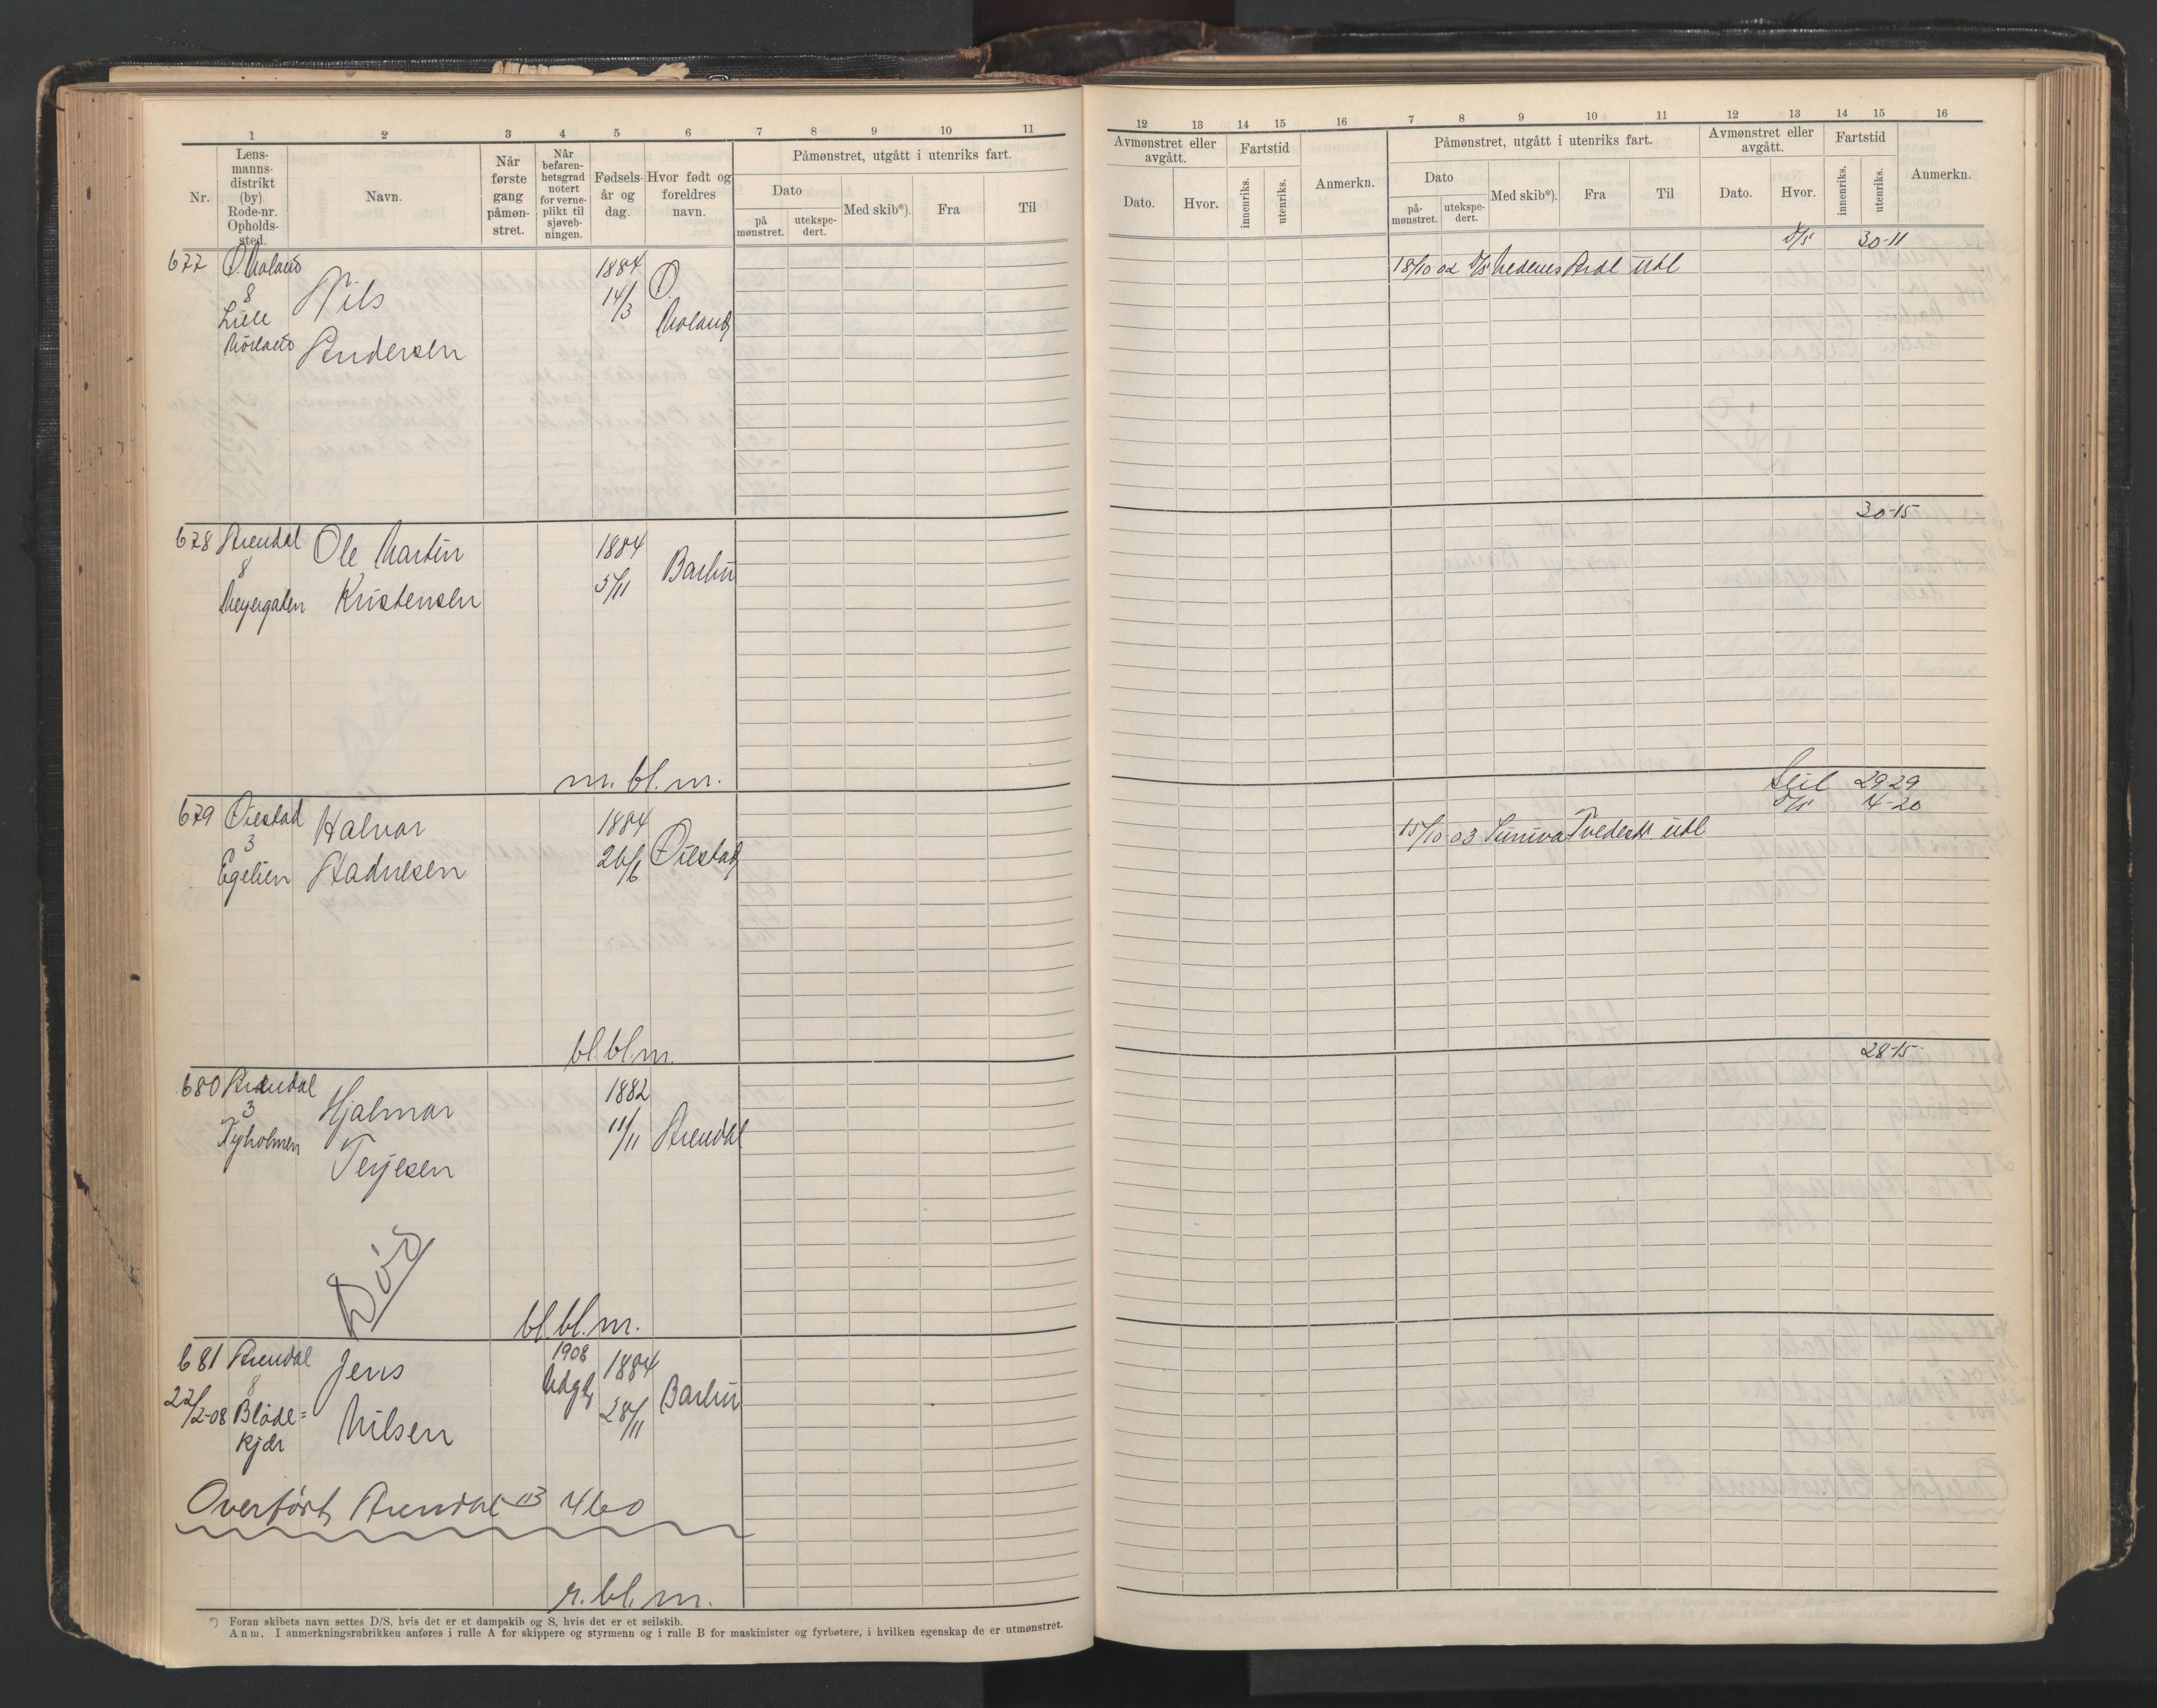 1 2 3 4 5 6 7 8 9 10 11
Nr.
Lens-
manns-
distrikt
(by).
Rode-nr.
Opholds-
sted.
Navn.
Når
første
gang
påmøn-
stret.
Når
befaren-
hetsgrad
notert
for verne-
plikt til
sjøveb-
ningen.
Fødsels-
år og
dag.
Hvor født og
foreldres
navn.
Påmønstret, utgått i utenriks fart.
Dato
på
mønstret.
utekspe-
dert.
Med skib*).
Fra
Til
677 Ø. Moland
8
Lille
Nils
Andersen
1884
14/3
Ø.
Moland
678 Arendal
8
Meyergaten
Ole Martin
Kristensen
1884
5/11
Barbu
m. bl. m.
679 Øiestad
3
Egelien
Halvor
1884
26/6
Øiestad
bl. bl. m.
680 Arendal
3
Tyholmen
Hjalmar
Terjesen
1882
11/11
Arendal
Död
bl. bl. m.
681 Arendal
8
22/2-08 Blöde=
kjær
Jens
Nilsen
1908
Udgt
1884
28/11
Barbu
Overført Arendal 460
r. bl. m.
*) Foran skibets navn settes D/S, hvis det er et dampskib og S, hvis det er et seilskib.
Anm. I anmerkningsrubrikken anføres i rulle A for skippere og styrmenn og i rulle B for maskinister og fyrbøtere, i hvilken egenskap de er utmønstret.
12 13 14 15 16 7 8 9 10 11 12 13 14 15 16
Avmønstret eller
avgått.
Dato.
Hvor.
Fartstid
innenriks.
utenriks.
Anmerkn.
Påmønstret, utgått i utenriks fart.
Dato
på-
mønstret.
utekspe-
dert.
Med skib*).
Fra
Til
Avmønstret eller
avgått.
Dato.
Hvor.
Fartstid
innenriks.
utenriks.
Anmerkn.
D/S 30-11
18/10 02 D/S Nedenes Ardl Udl
30-15
Seil 29-29
D/S 14-20
15/10 03 Sunniva Tvedestr Udl
28-15